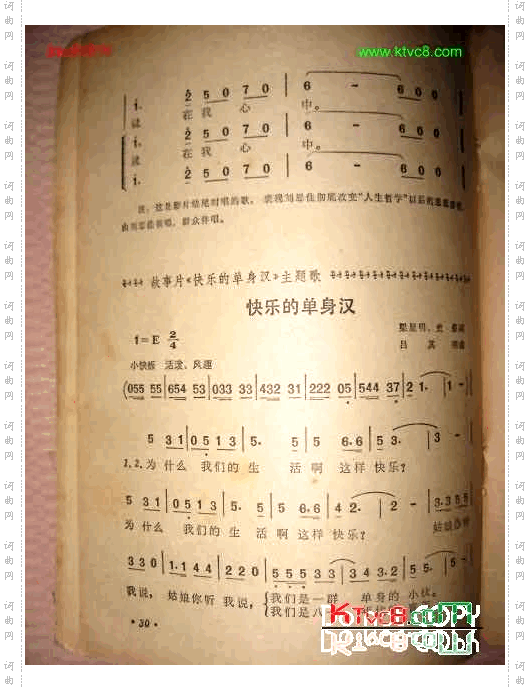 www.ktvc8.com
i. 2 5 0 7 0 6 - 6 0 0
说 在我 心 中。
i. 2 5 0 7 0 6 - 6 0 0
说 在我 心 中。
i. 2 5 0 7 0 6 - 6 0 0
注:这是影片结尾时唱的歌,表现刘思佳彻底改变“人生哲学”以后的
群众伴唱。
故事片《快乐的单身汉》主题歌
快乐的单身汉
1=E 2/4
吕其明曲
小快板 活泼、风趣
(055 55 | 654 53 | 033 33 | 432 31 | 222 05 | 544 37 | 2 1· | 1 - )
5 31 | 0513 | 5· 5 | 5 6·6 | 5 3· | 3 -
1.2.为 什么 我们的 生 活 啊 这样 快乐?
5 31 | 0513 | 5· 5 | 5 6·6 | 4 2· | 2 - | 3·3 55
为 什么 我们的 生 活 啊 这样 快乐? 姑娘
330 | 1·1 44 | 220 | 555 33 | 34 3·2 | 5 5·
我说, 姑娘你听 我说, {我们是一群 单身的小伙。
{我们是八
·30·
KTvc8.com COPY
词曲网